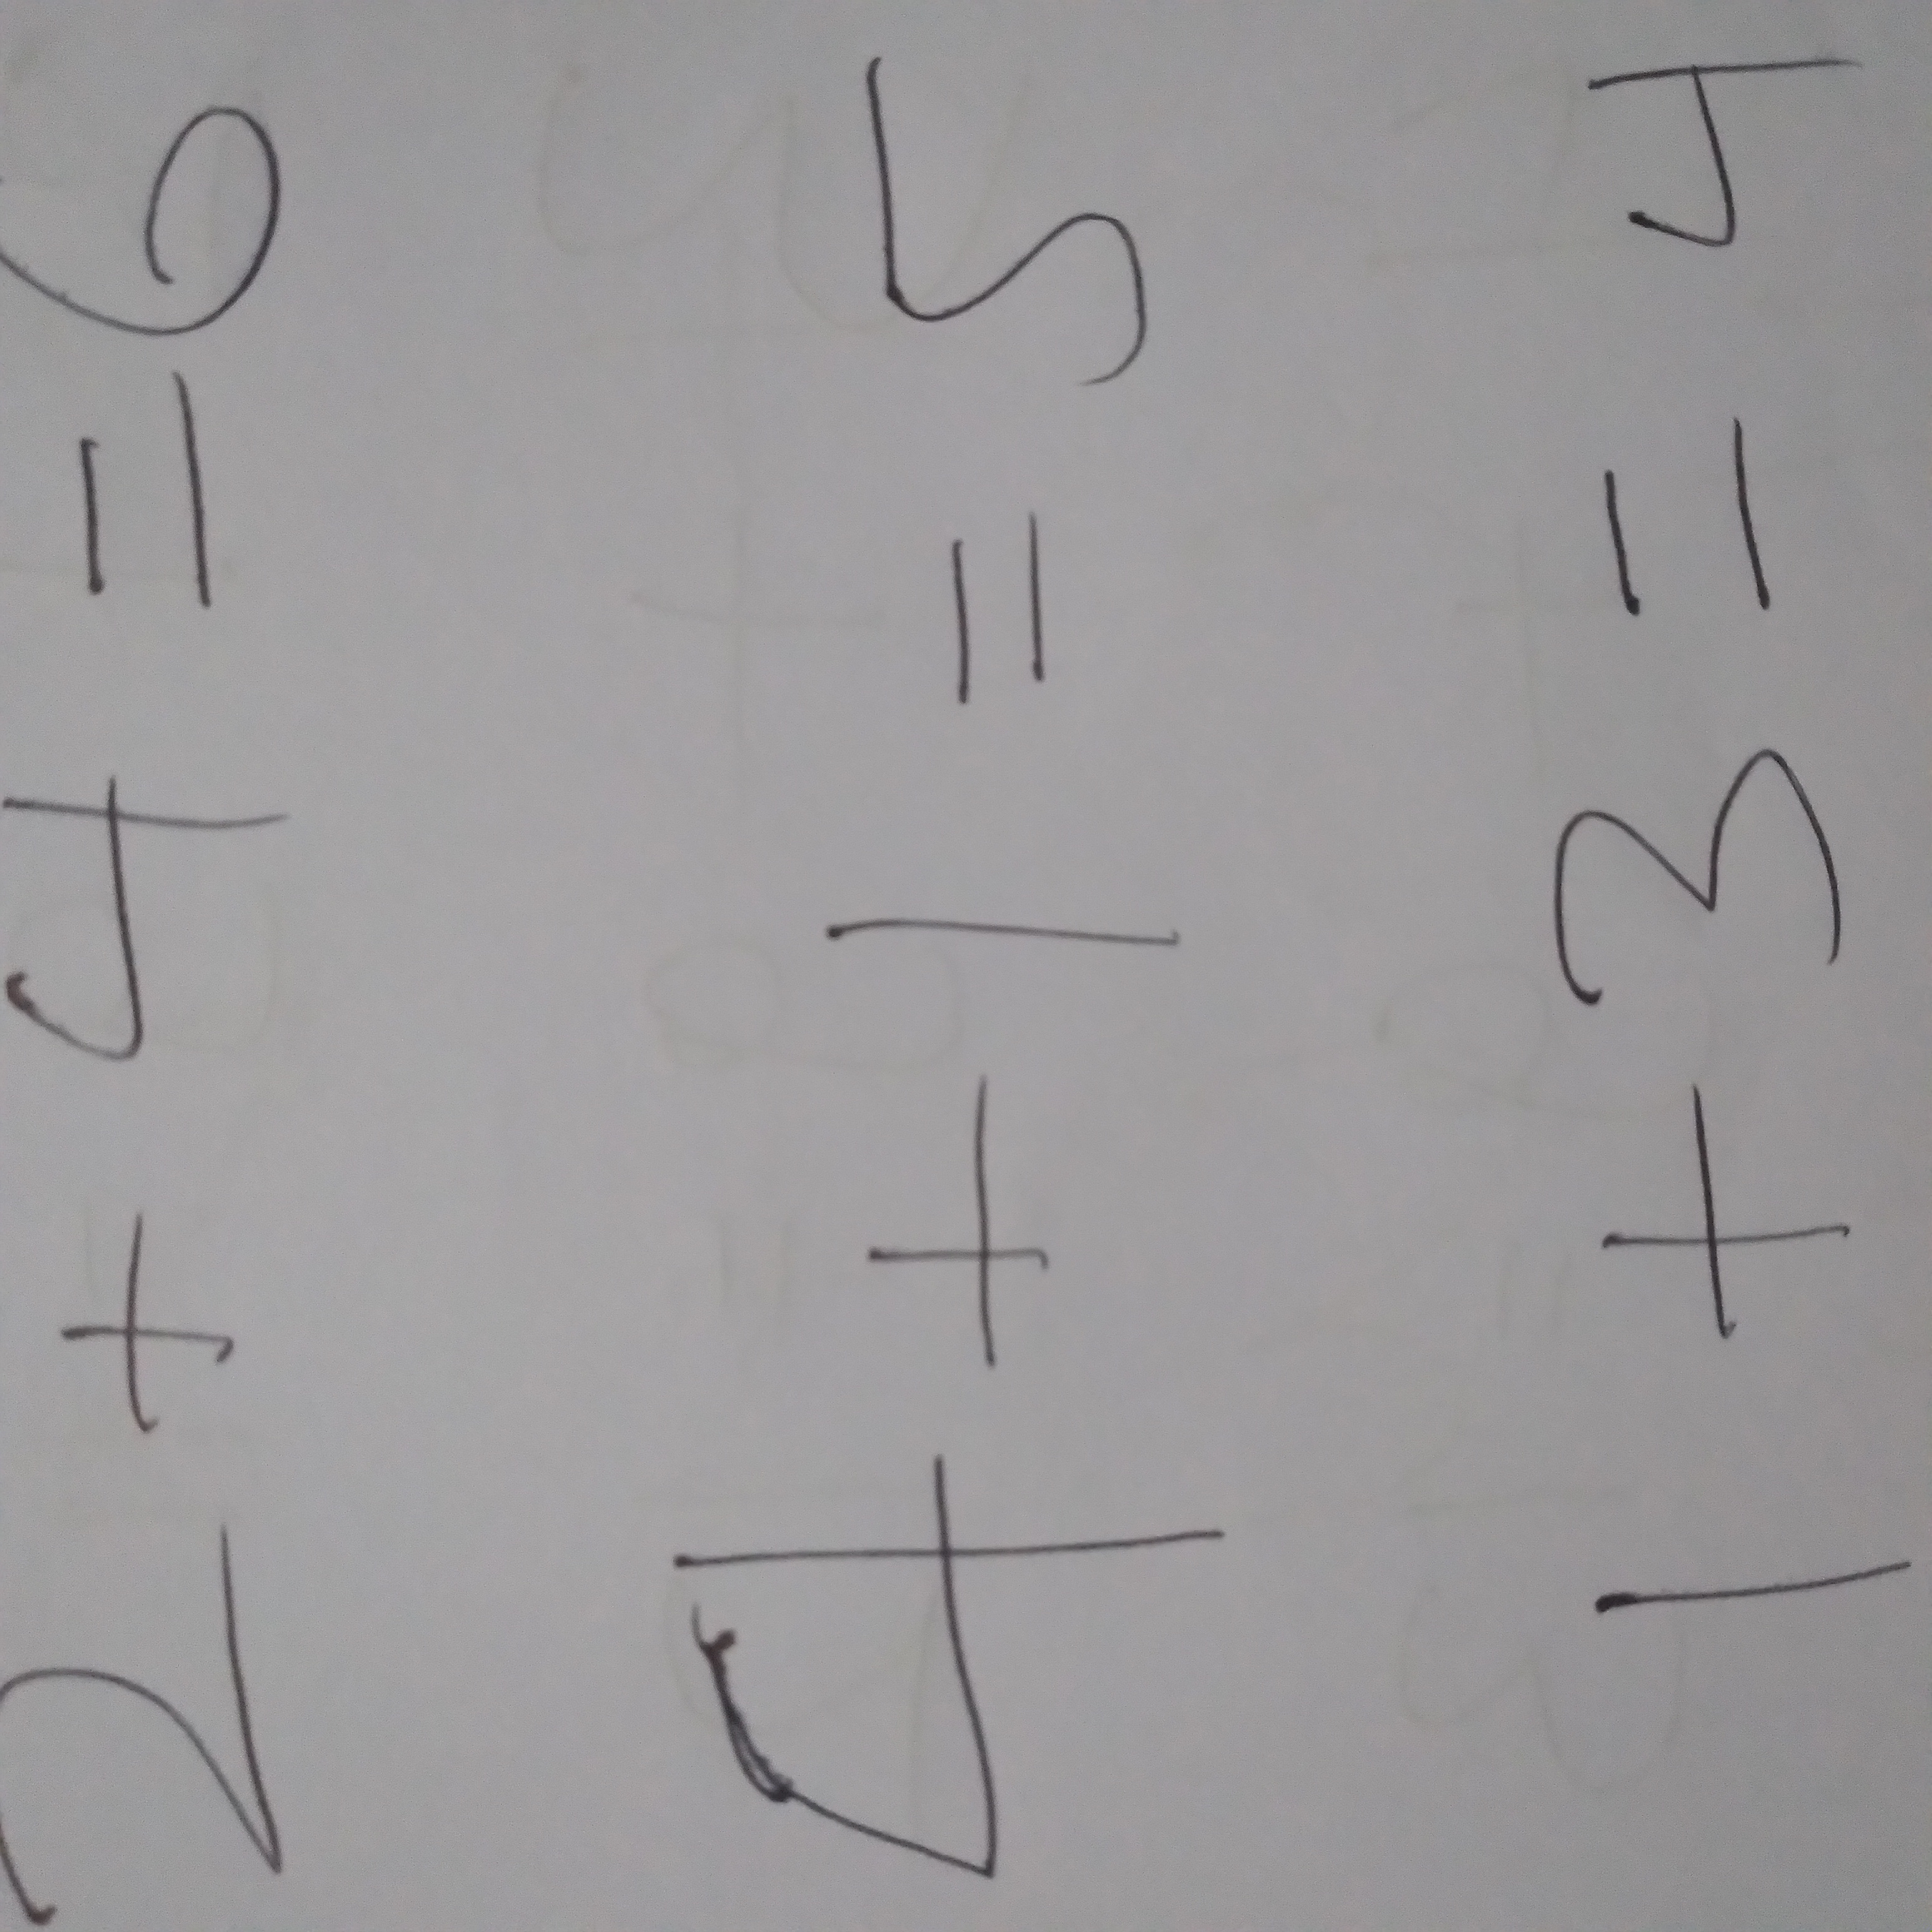 2 + 4 = 6
4 + 1 = 5
1 + 3 = 4